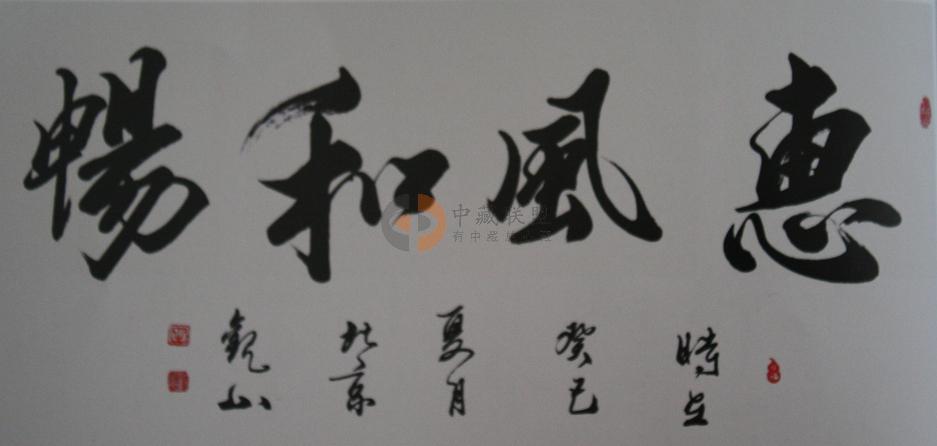 惠風和暢
時在
癸巳
夏月
北京
觀山
中藏联盟